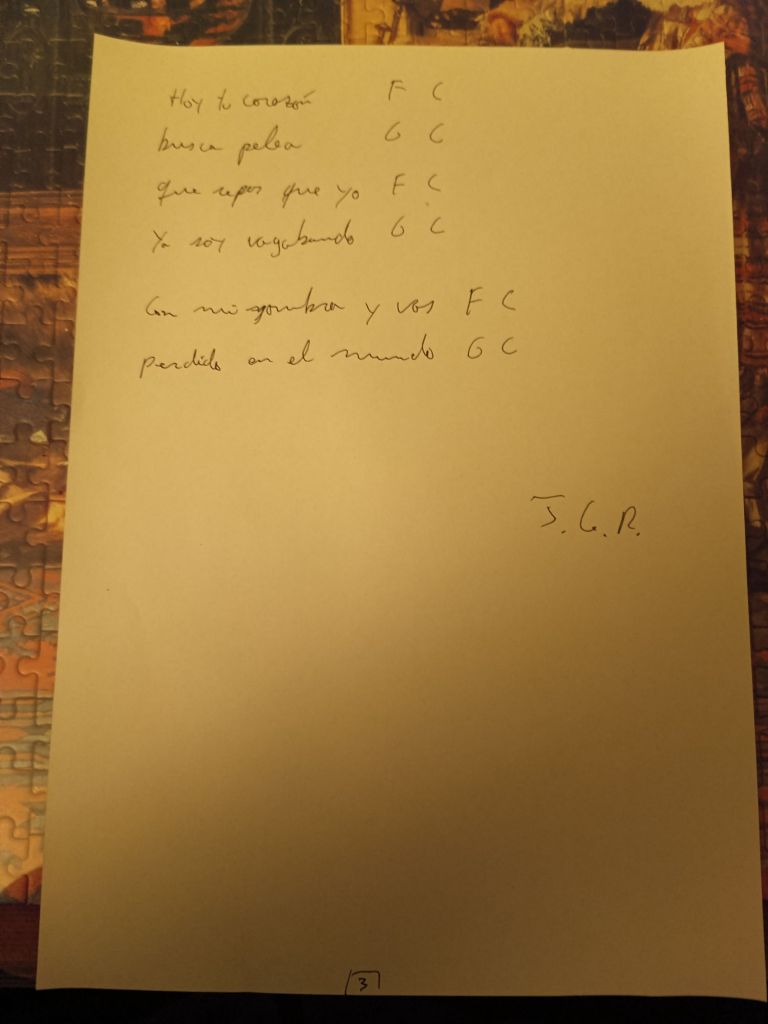 Hoy tu corazón F C
busca pelea G C
que sepas que yo F C
Ya soy vagabundo G C
Con mi sombra y vos F C
perdido en el mundo G C
J.G.R.
3